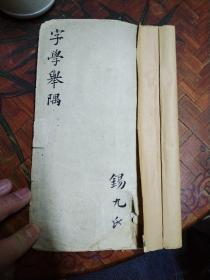 字學舉隅
錫九氏